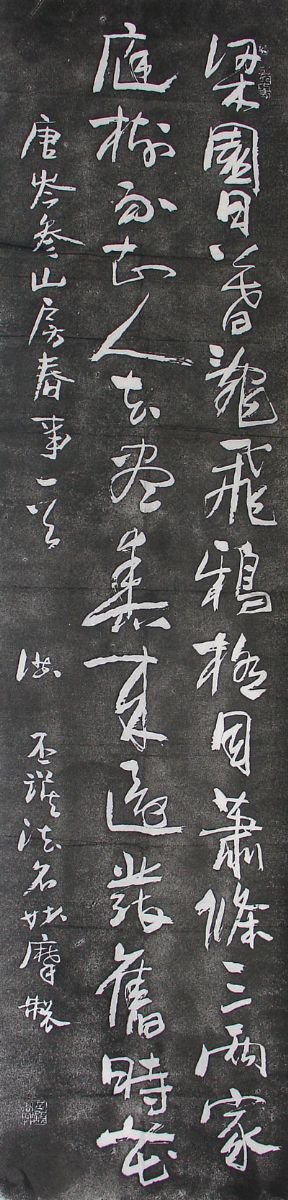 梁園日暮亂飛鴉極目蕭條三兩家
庭樹不知人去盡春來還發舊時花
唐岑參山房春事一首 洪丕謨法名妙摩製